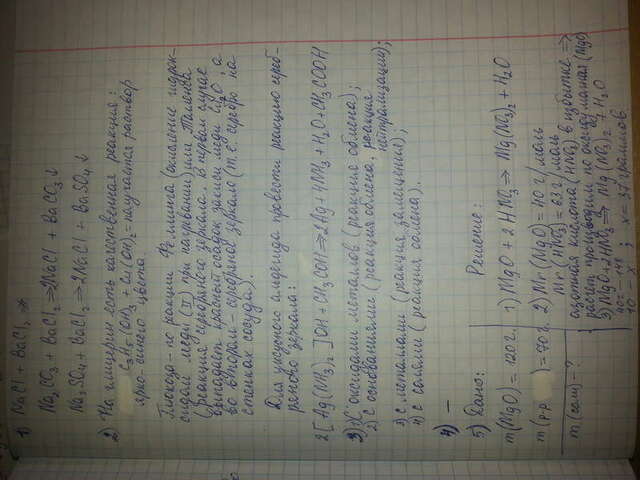 1) NaCl + BaCl₂ ↛
Na₂CO₃ + BaCl₂ ⇒ 2NaCl + BaCO₃↓
Na₂SO₄ + BaCl₂ ⇒ 2NaCl + BaSO₄↓
2) На глицерин есть качественная реакция:
C₃H₅(OH)₃ + Cu(OH)₂ = получается раствор
ярко-синего цвета.
Глюкоза - по реакции Фелинга (окисление гидрок-
сидом меди (II) при нагревании) или Толленса
(реакция серебряного зеркала. В первом случае
выпадает красный осадок закиси меди Cu₂O, а
во втором - серебряное зеркало (т.е. серебро на
стенках сосуда).
Для уксусного альдегида провести реакцию сереб-
ряного зеркала:
2[Ag(NH₃)₂]OH + CH₃COH ⇒ 2Ag + 4NH₃ + H₂O + CH₃COOH
3) 1) С оксидами металлов (реакция обмена);
2) с основаниями (реакция обмена, реакция
нейтрализации);
3) с металлами (реакция замещения);
4) с солями (реакция обмена).
4) —
5) Дано:
m(MgO) = 120 г.
m(р-р) = 70 г.
m(соли) - ?
Решение:
1) MgO + 2HNO₃ ⇒ Mg(NO₃)₂ + H₂O
2) Mr(MgO) = 40 г/моль
Mr(HNO₃) = 63 г/моль
азотная кислота (HNO₃) в избытке ⇒
расчёт производим по оксиду магния (MgO)
3) MgO + 2HNO₃ ⇒ Mg(NO₃)₂ + H₂O
; x = 37 граммов